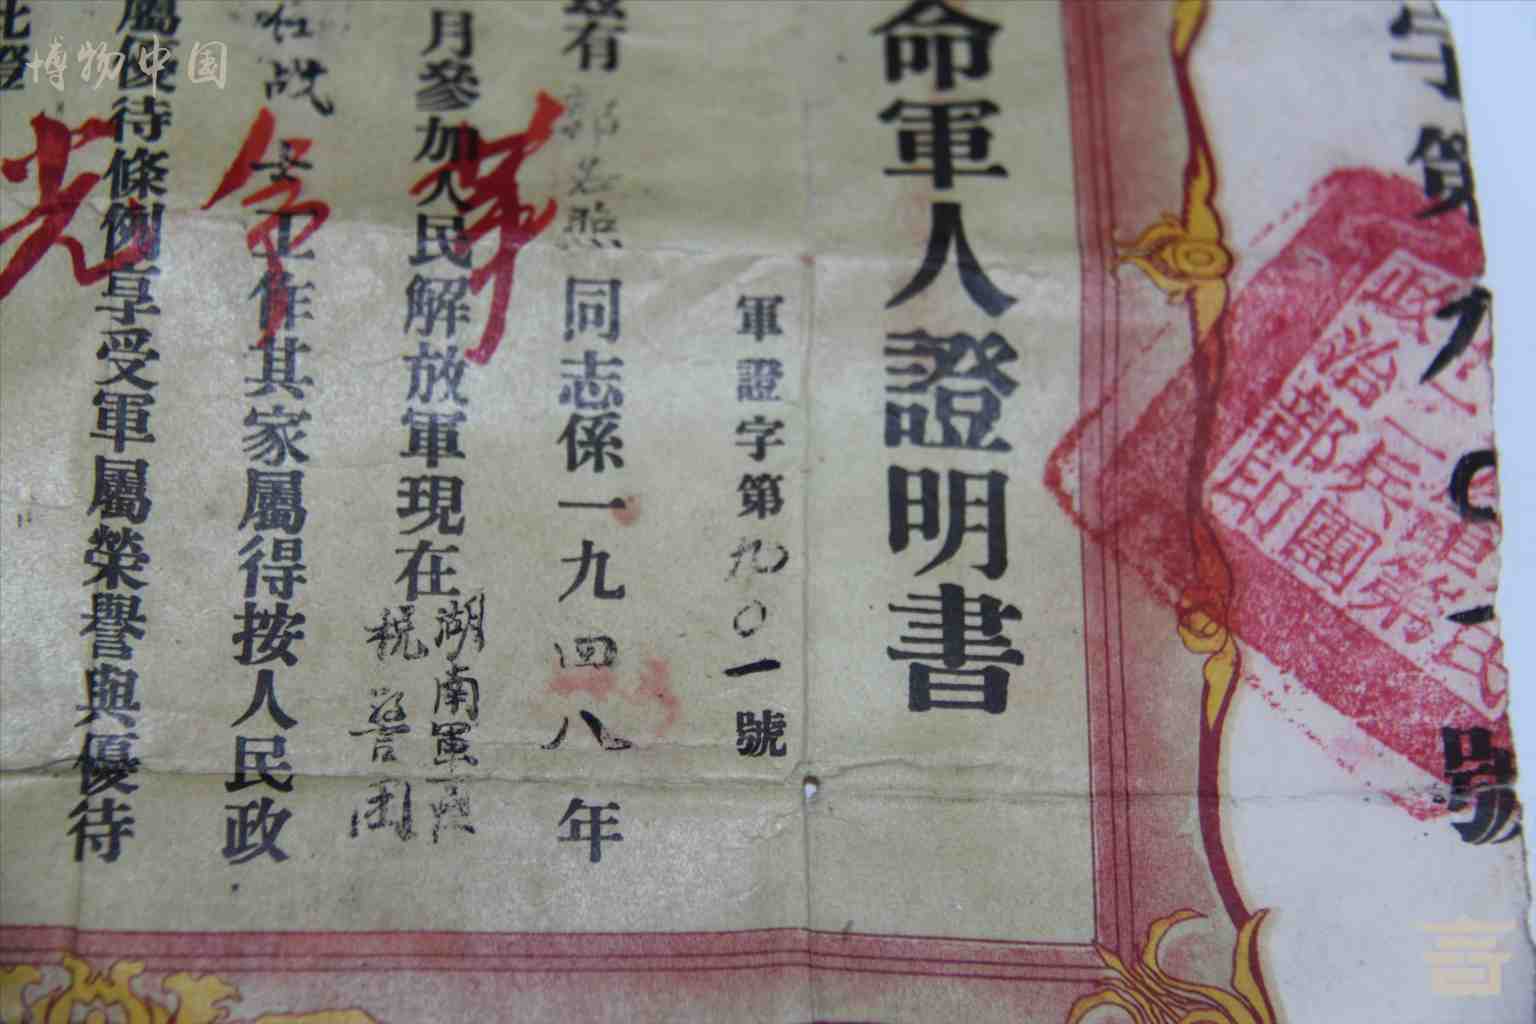 字第九〇一號
命軍人證明書
軍證字第九〇一號
茲有
同志係一九四八年
月參加人民解放軍現在湖南軍區
税警团
任战士工作其家屬得按人民政
屬優待條例享受軍屬榮譽與優待
此證
革
命
光
政治部印
一兵團
第
民
博物中国